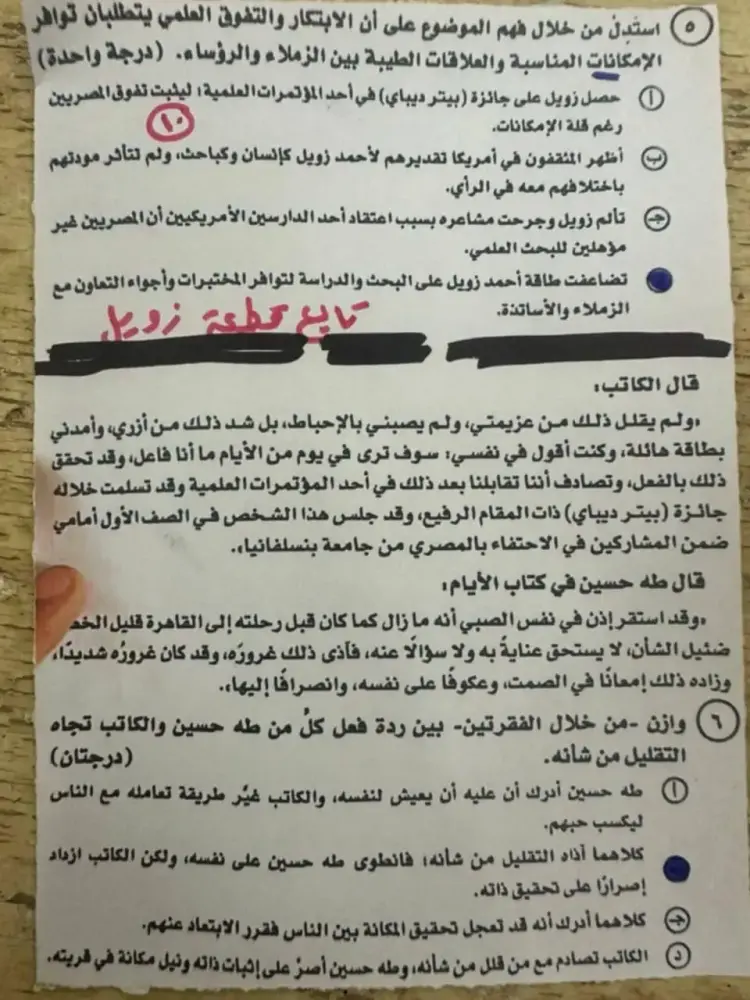 ٥ استَدِلّ من خلال فهم الموضوع على أن الابتكار والتفوق العلمي يتطلبان توافر
الإمكانات المناسبة والعلاقات الطيبة بين الزملاء والرؤساء. (درجة واحدة)
أ حصل زويل على جائزة (بيتر ديباي) في أحد المؤتمرات العلمية؛ ليثبت تفوق المصريين
رغم قلة الإمكانات.
١٠
ب أظهر المثقفون في أمريكا تقديرهم لأحمد زويل كإنسان وكباحث، ولم تتأثر مودتهم
باختلافهم معه في الرأي.
جـ تألم زويل وجرحت مشاعره بسبب اعتقاد أحد الدارسين الأمريكيين أن المصريين غير
مؤهلين للبحث العلمي.
تضاعفت طاقة أحمد زويل على البحث والدراسة لتوافر المختبرات وأجواء التعاون مع
الزملاء والأساتذة.
تابع قطعة زويل
قال الكاتب:
«ولم يقلل ذلك من عزيمتي، ولم يصبني بالإحباط، بل شد ذلك من أزري، وأمدني
بطاقة هائلة، وكنت أقول في نفسي: سوف ترى في يوم من الأيام ما أنا فاعل، وقد تحقق
ذلك بالفعل، وتصادف أننا تقابلنا بعد ذلك في أحد المؤتمرات العلمية وقد تسلمت خلاله
جائزة (بيتر ديباي) ذات المقام الرفيع، وقد جلس هذا الشخص في الصف الأول أمامي
ضمن المشاركين في الاحتفاء بالمصري من جامعة بنسلفانيا».
قال طه حسين في كتاب الأيام:
«وقد استقر إذن في نفس الصبي أنه ما زال كما كان قبل رحلته إلى القاهرة قليل
ضئيل الشأن، لا يستحق عنايةً به ولا سؤالًا عنه، فآذى ذلك غروره، وقد كان غروره شديدًا،
وزاده ذلك إمعانًا في الصمت، وعكوفًا على نفسه، وانصرافًا إليها».
٦ وازن -من خلال الفقرتين- بين ردة فعل كلٌ من طه حسين والكاتب تجاه
التقليل من شأنه. (درجتان)
أ طه حسين أدرك أن عليه أن يعيش لنفسه، والكاتب غيَّر طريقة تعامله مع الناس
ليكسب حبهم.
كلاهما آذاه التقليل من شأنه؛ فانطوى طه حسين على نفسه، ولكن الكاتب ازداد
إصرارًا على تحقيق ذاته.
جـ كلاهما أدرك أنه قد تعجل تحقيق المكانة بين الناس فقرر الابتعاد عنهم.
د الكاتب تصادم مع من قلل من شأنه، وطه حسين أصرَّ على إثبات ذاته ونيل مكانة في قريته.